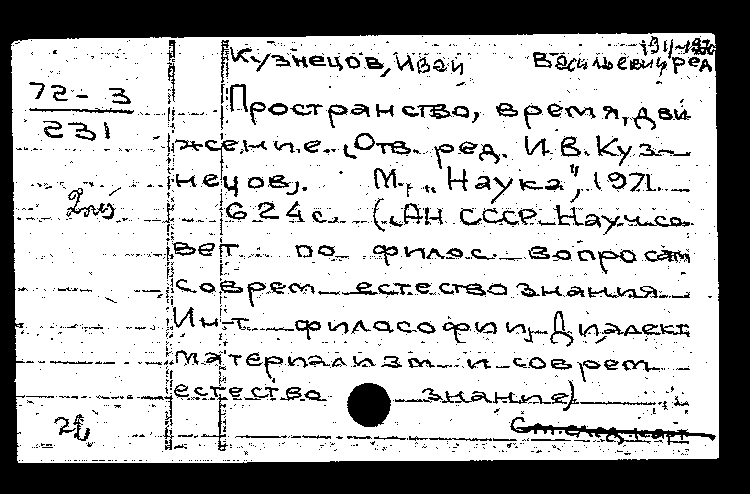 1911-1970
Кузнецов, Иван Васильевич, ред
72-3
231
Пространство, время, дви
жение. (Отв. ред. И.В. Куз-
нецов). М., „Наука", 1971.
624 с. (АН СССР. Науч. со
вет по филос. вопросам
соврем естествознания
Ин-т философии, Диалект
материализм и соврем
естество знание)
См. след. карт